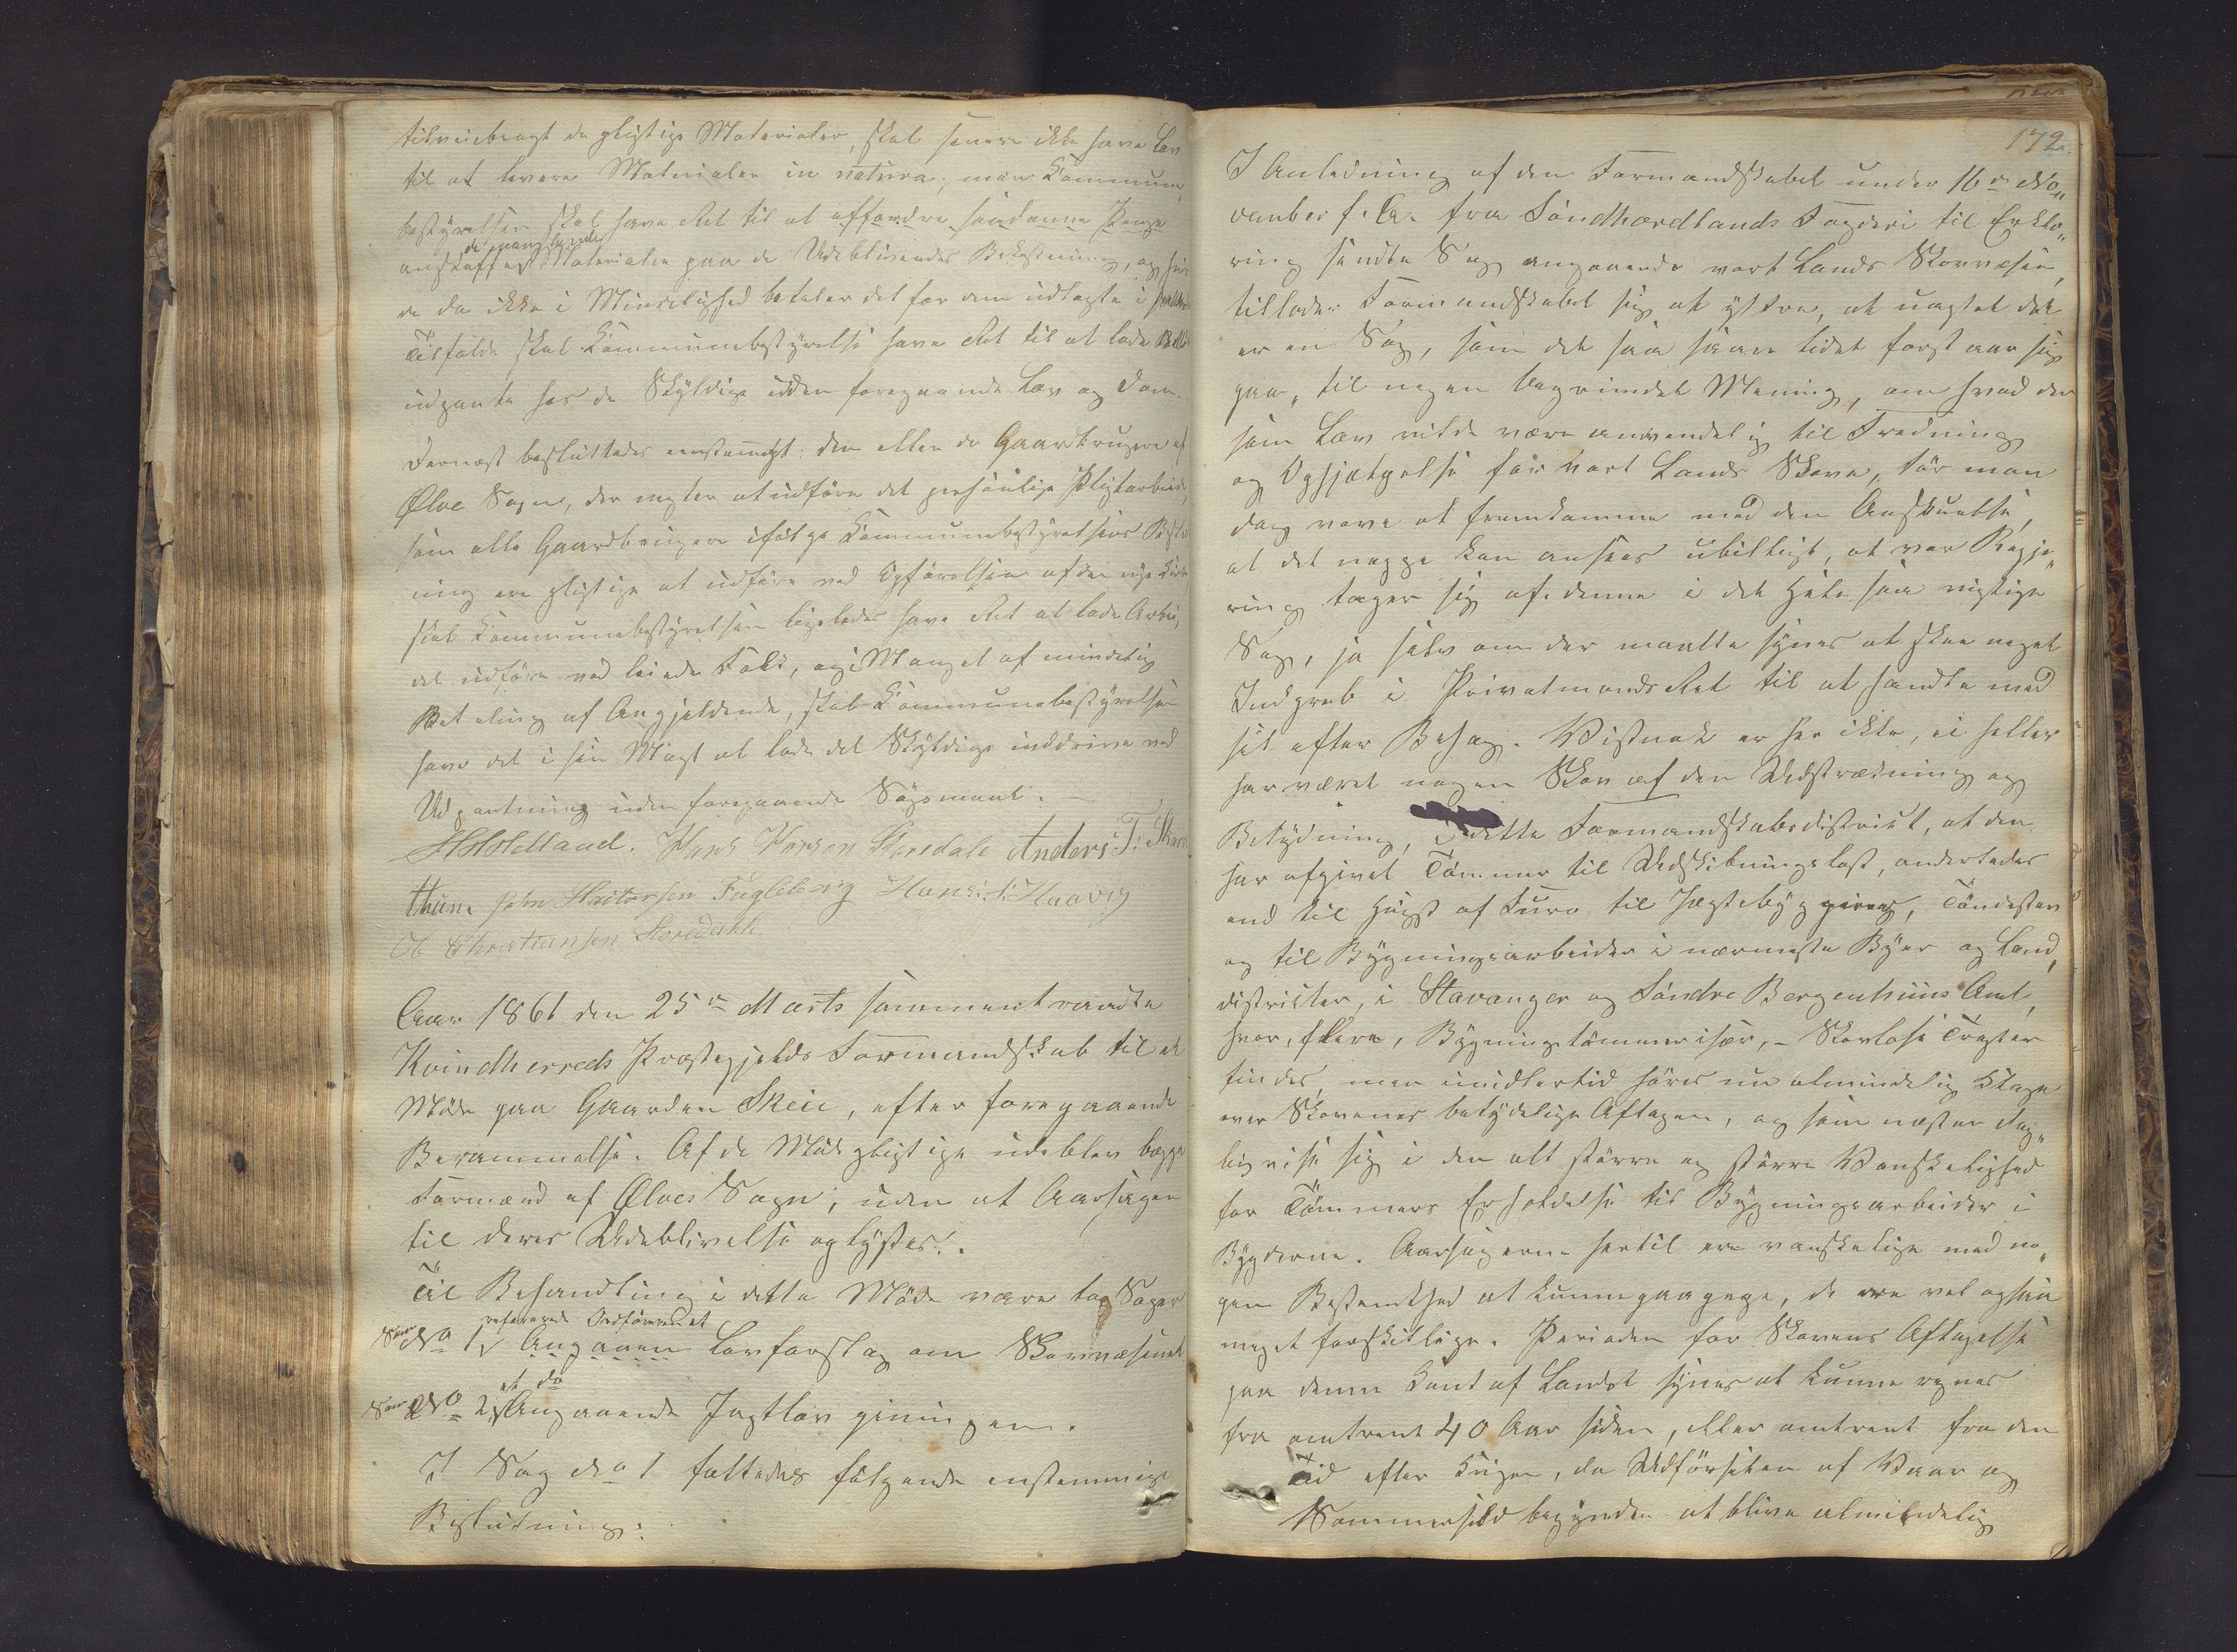 tilveiebragt de pligtige Materialer, skal senere ikke have Lov
til at levere Materialer in natura; men Kommune
bestyrelsen skal have Ret til at affordre saadanne Penge
de manglende
anskaffes Materialier paa de Udeblivendes Bekostning, og hvis
de da ikke i Mindelighed betaler det for dem udlagte i
Tilfælde skal Kommunebestyrelse have Ret til at lade
udpante hos de Skyldige uden foregaaende Lov og Dom.
Dernæst besluttedes eenstemigt: den eller de Gaardbrugere af
Ølve Sogn, der negter at udføre det personlige Pligtarbeide,
som alle Gaardbrugere ifølge Kommunebestyrelsens
ning ere pligtige at udføre ved Opførelsen af den nye
skal Kommunebestyrelsen ligeledes have Ret at lade Arbei,
det udføre ved leiede Folk, og i Mangel af mindelig
Betaling af Angjeldende, skal Kommunebestyrelsen
have det i sin Magt at lade det Skyldige inddrive ved
Udpantning uden foregaaende Søgsmaal. —
Holdland. Hans Larsen Storsdale Anders T:
thun. John Haktorsen Fugleberg Hans: S: Haavig
O Christiansen Storedahle
Aar 1861 den 25de Marts sammentraadte
Kvindherreds Præstegjelds Formandskab til et
Møde paa Gaarden Skeie, efter foregaaende
Berammelse. Af de Mødepligtige udeblev begge
Formænd af Ølves Sogn, uden at Aarsagen
til deres Udeblivelse oplystes.
Til Behandling i dette Møde vare tog Sager
refererede Ordføreren at
No 1, Angaaen Lovforslag om Skovvæsenet
at do
No 2, Angaaende Jagtlovgivningen.
I Sag No 1 fattedes følgende enstemmige
Beslutning:
172.
I Anledning af den Formandskabet under 16de No„
vember f. A. fra Søndhordlands Fogderi til Erklæ„
ring sendte Sag angaaende vort Lands Skovvæsen,
tillader Formandskabet sig at yttre, at uagtet det
er en Sag, som det saa saare lidet forstaar sig
paa, til nogen begrundet Mening, om hvad der
som Lov vilde være anvendelig til Fredning
og Ophjælpelse for vort Lands Skove, tør man
dog vove at fremkomme med den Anskuelse,
at det neppe kan ansees ubilligt, at vor Regje„
ring tager sig af denne i det Hele saa vigtige
Sag, ja selv om der maatte synes at skee noget
Indgreb i Privatmands Ret til at handle med
sit efter Behag. Vistnok er her ikke, ei heller
har været nogen Skov af den Udstrækning og
Betydning, i dette Formandskabsdistrict, at den
har afgivet Tømmer til Udskibningslast, anderledes
end til Hugst af Furu til Jægtebyggeries, Tøndestav
og til Bygningsarbeider i nærmeste Byer og Land,
districter, i Stavanger og Søndre Bergenhuus Amt,
hvor, flere, Bygningstømmer især, – Skovløse Trakter
findes, men imidlertid høres nu almindelig Klage
over Skovenes betydelige Aftagen, og som næsten dag„
lig vise sig i den alt større og større Vanskelighed
for Tømmers Erholdelse til Bygningsarbeider i
Bygderne. Aarsagerne hertil ere vanskelige med no„
gen Bestemthed at kunne paapege, de ere vel ogsaa
meget forskjellige. Perioden for Skovens Aftagelse
paa denne Kant af Landet synes at kunne regnes
fra omtrent 40 Aar siden, eller omtrent fra den
Tid efter Krigen, da Udførselen af Vaar og
Sommersild begyndte at blive almindelig